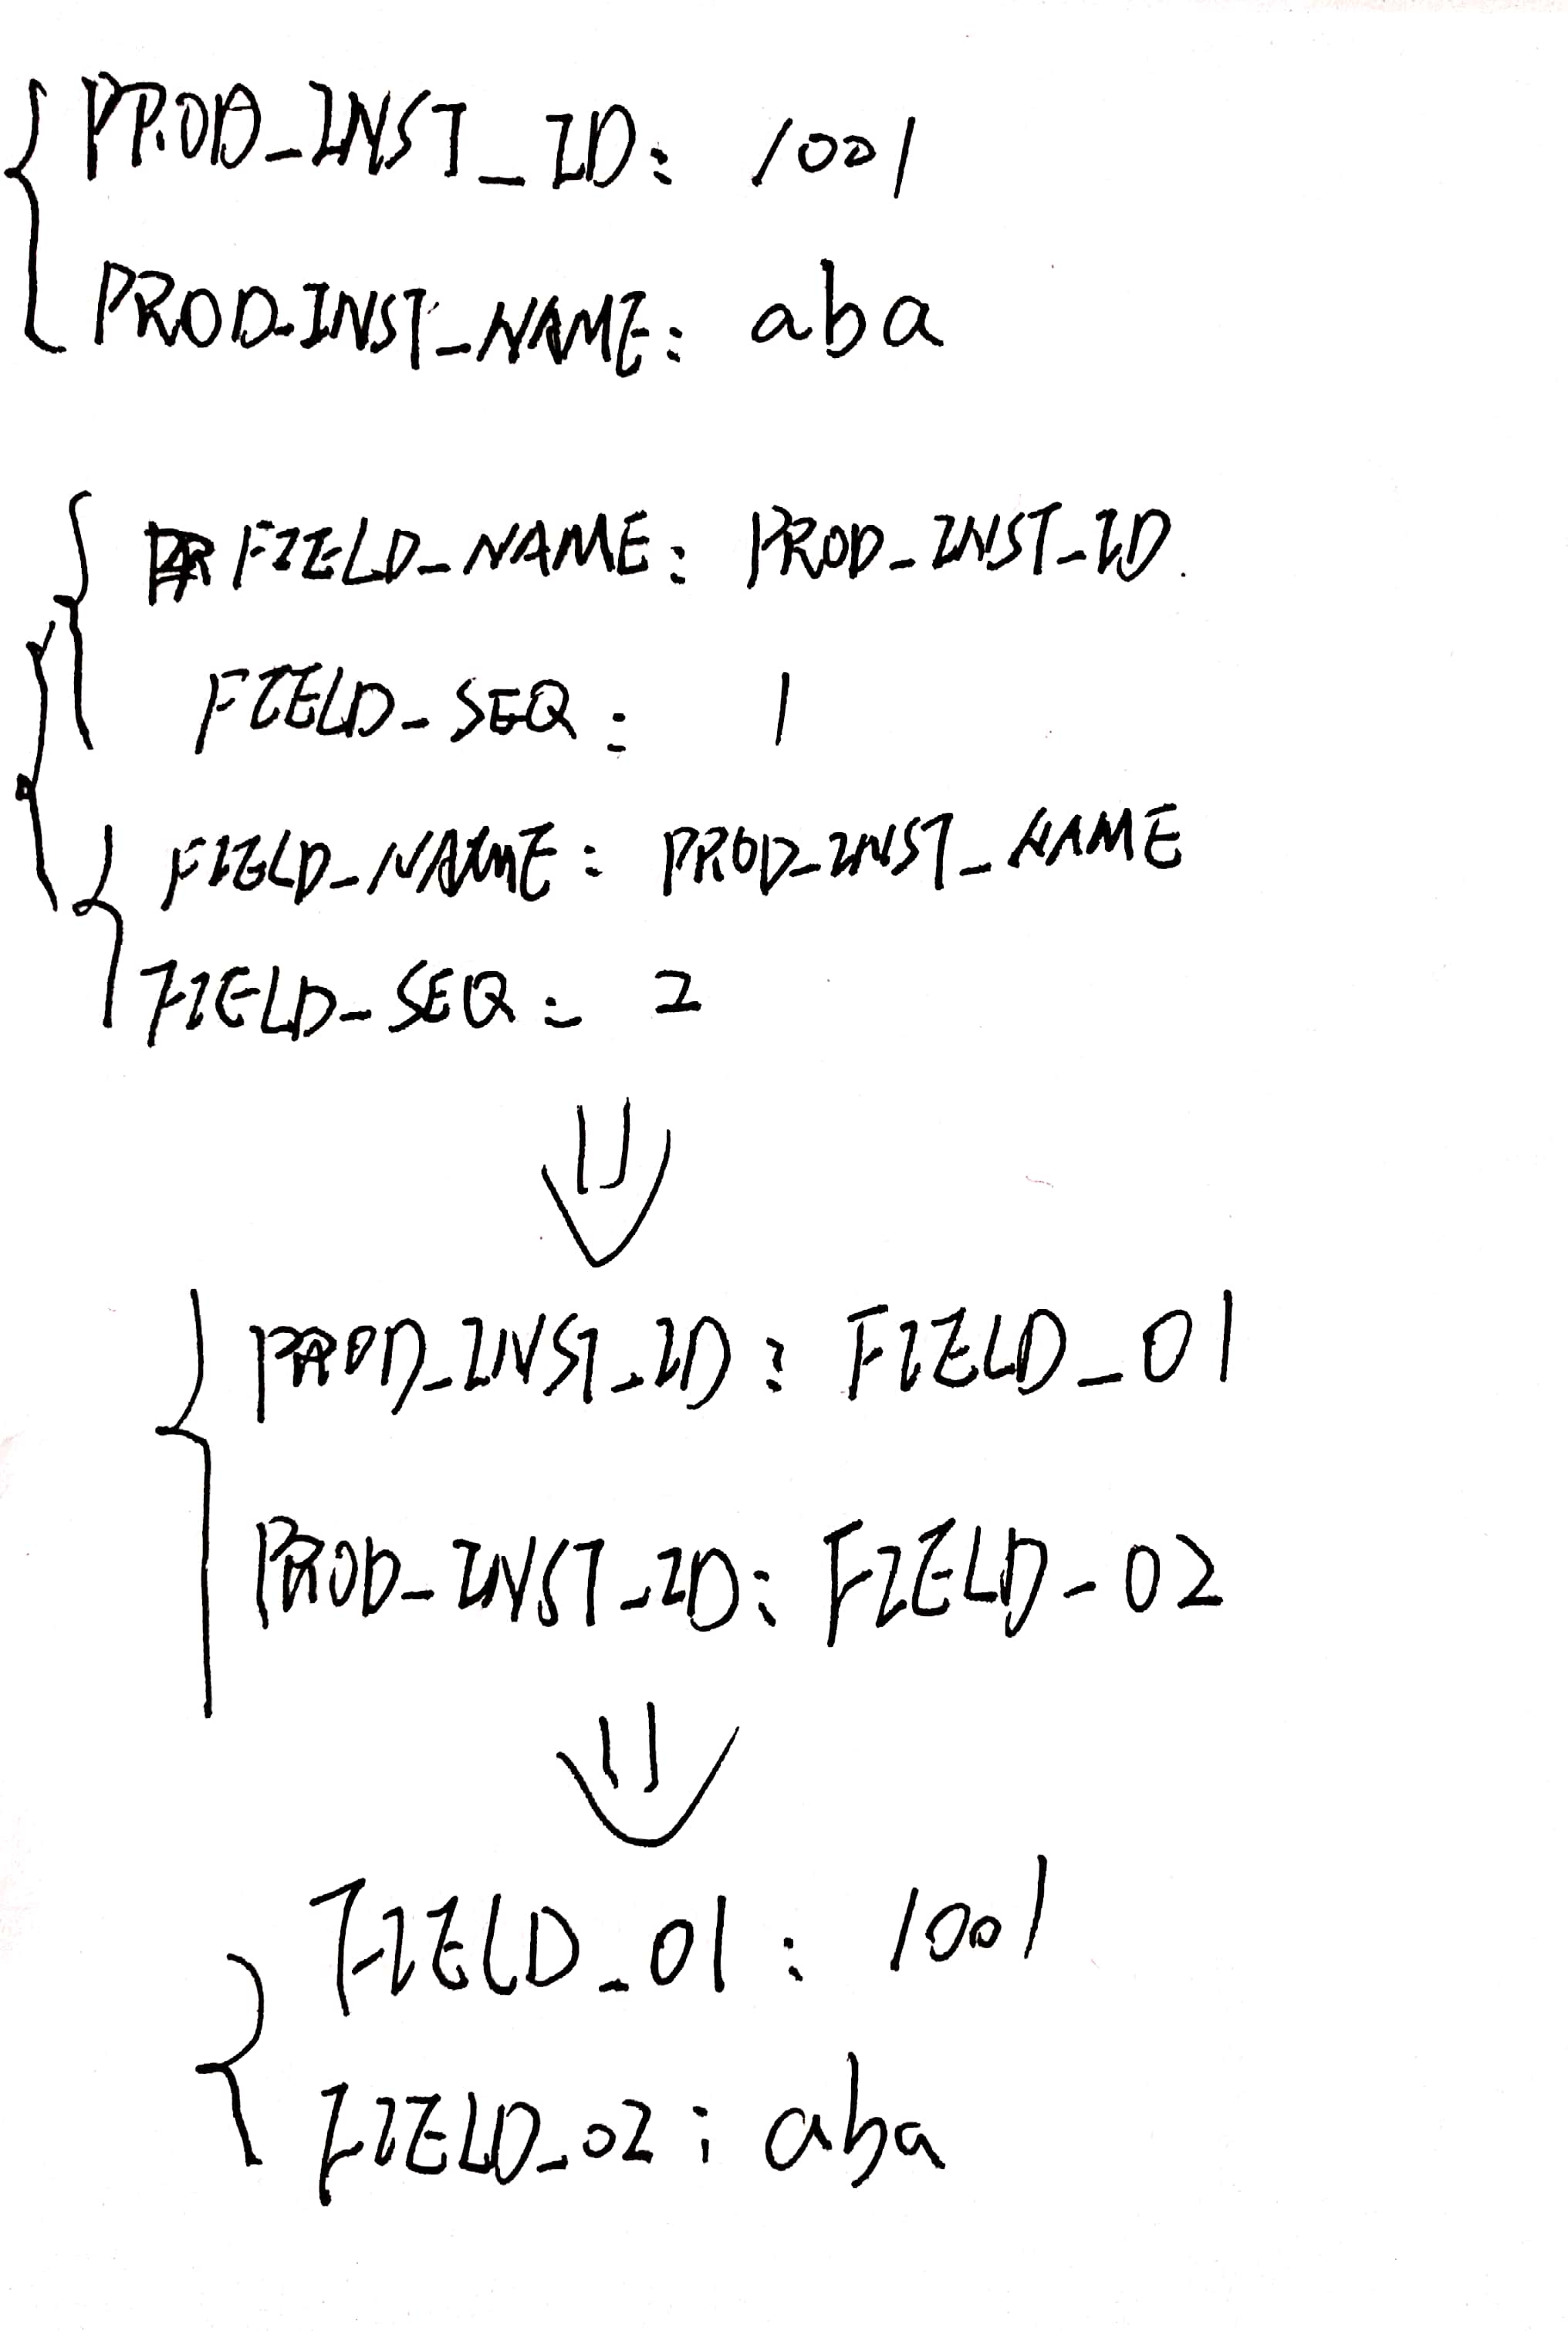 PROD_INST_ID: 1001
PROD_INST_NAME: aba
FIELD_NAME: PROD_INST_ID.
FIELD_SEQ: 1
FIELD_NAME: PROD_INST_NAME
FIELD_SEQ: 2
PROD_INST_ID: FIELD_01
PROD_INST_ID: FIELD_02
FIELD_01: 1001
FIELD_02: aba